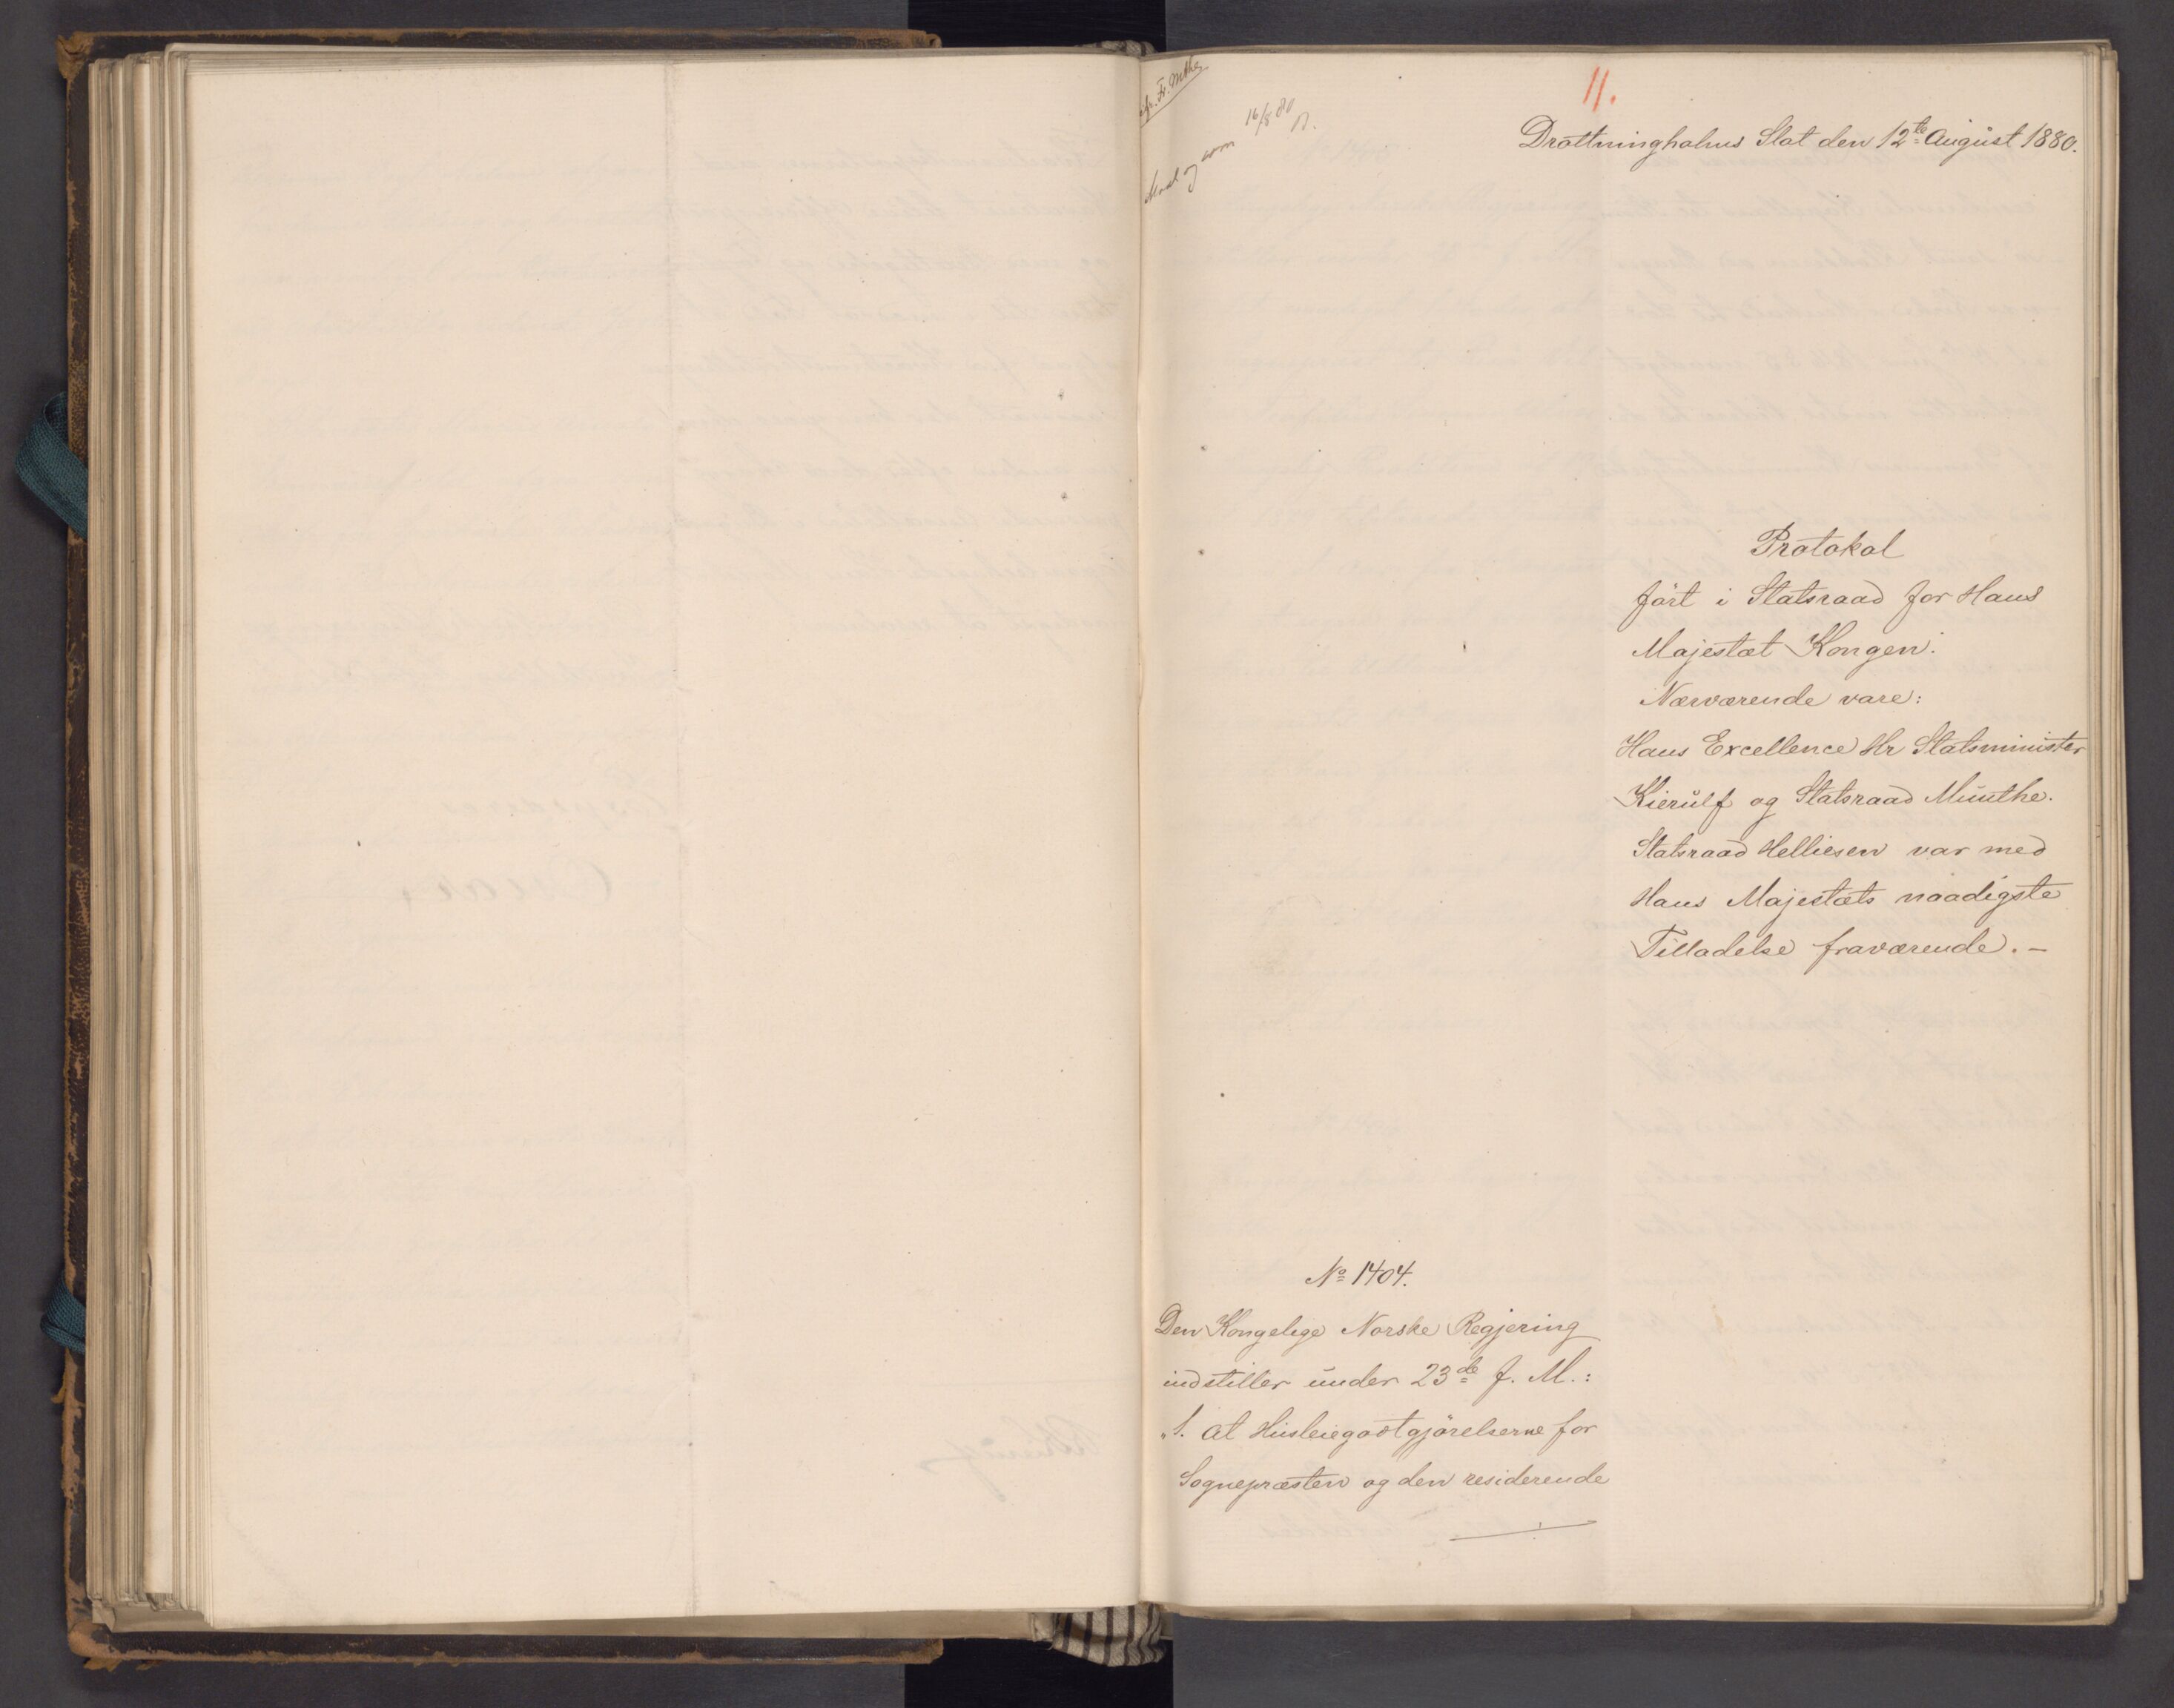 11.
16/8 80
Drottningholms Slot den 12te August 1880.
Protokol
ført i Statsraad for Hans
Majestæt Kongen.
Nærværende vare:
Hans Excellence Hr Statsminister
Kierulf og Statsraad Munthe.
Statsraad Helliesen var med
Hans Majestæts naadigste
Tilladelse fraværende. –
No 1404.
Den Kongelige Norske Regjering
indstiller under 23de f. M.:
"1. at Husleiegodtgjørelserne for
Sognepræsten og den residerende